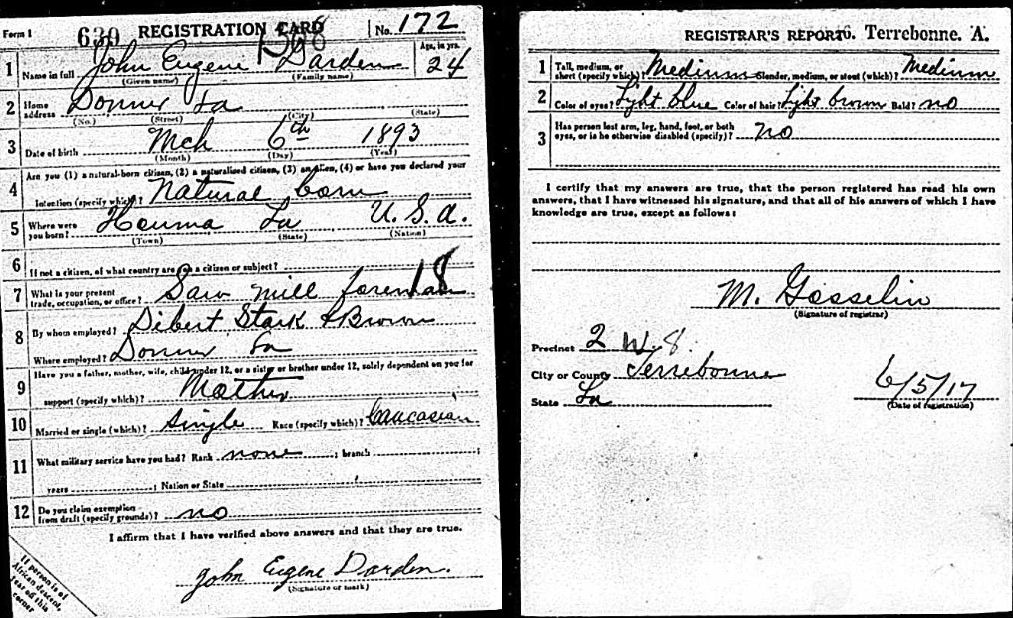 Form 1 639 REGISTRATION CARD 1568 No. 172
1 Name in full John Eugene Darden Age, in yrs. 24
(Given name) (Family name)
2 Home address Donner La
(No.) (Street) (City) (State)
3 Date of birth Mch 6th 1893
(Month) (Day) (Year)
4 Are you (1) a natural-born citizen, (2) a naturalized citizen, (3) an alien, (4) or have you declared your
intention (specify which)? Natural born
5 Where were you born? Houma La U. S. A.
(Town) (State) (Nation)
6 If not a citizen, of what country are you a citizen or subject?
7 What is your present trade, occupation, or office? Saw mill foreman 18
8 By whom employed? Dibert Stark & Brown
Where employed? Donner La
9 Have you a father, mother, wife, child under 12, or a sister or brother under 12, solely dependent on you for
support (specify which)? Mother
10 Married or single (which)? Single Race (specify which)? Caucasian
11 What military service have you had? Rank none ; branch ;
years ; Nation or State
12 Do you claim exemption from draft (specify grounds)? no
I affirm that I have verified above answers and that they are true.
John Eugene Darden.
(Signature or mark)
If person is of
African descent,
tear off this
corner
REGISTRAR'S REPORT Terrebonne. A.
1 Tall, medium, or short (specify which)? Medium Slender, medium, or stout (which)? Medium
2 Color of eyes? Light blue Color of hair? Light brown Bald? no
3 Has person lost arm, leg, hand, foot, or both
eyes, or is he otherwise disabled (specify)? no
I certify that my answers are true, that the person registered has read his own
answers, that I have witnessed his signature, and that all of his answers of which I have
knowledge are true, except as follows:
M. Gosselin
(Signature of registrar)
Precinct 2 W. 8
City or County Terrebonne
State La
6/5/17
(Date of registration)